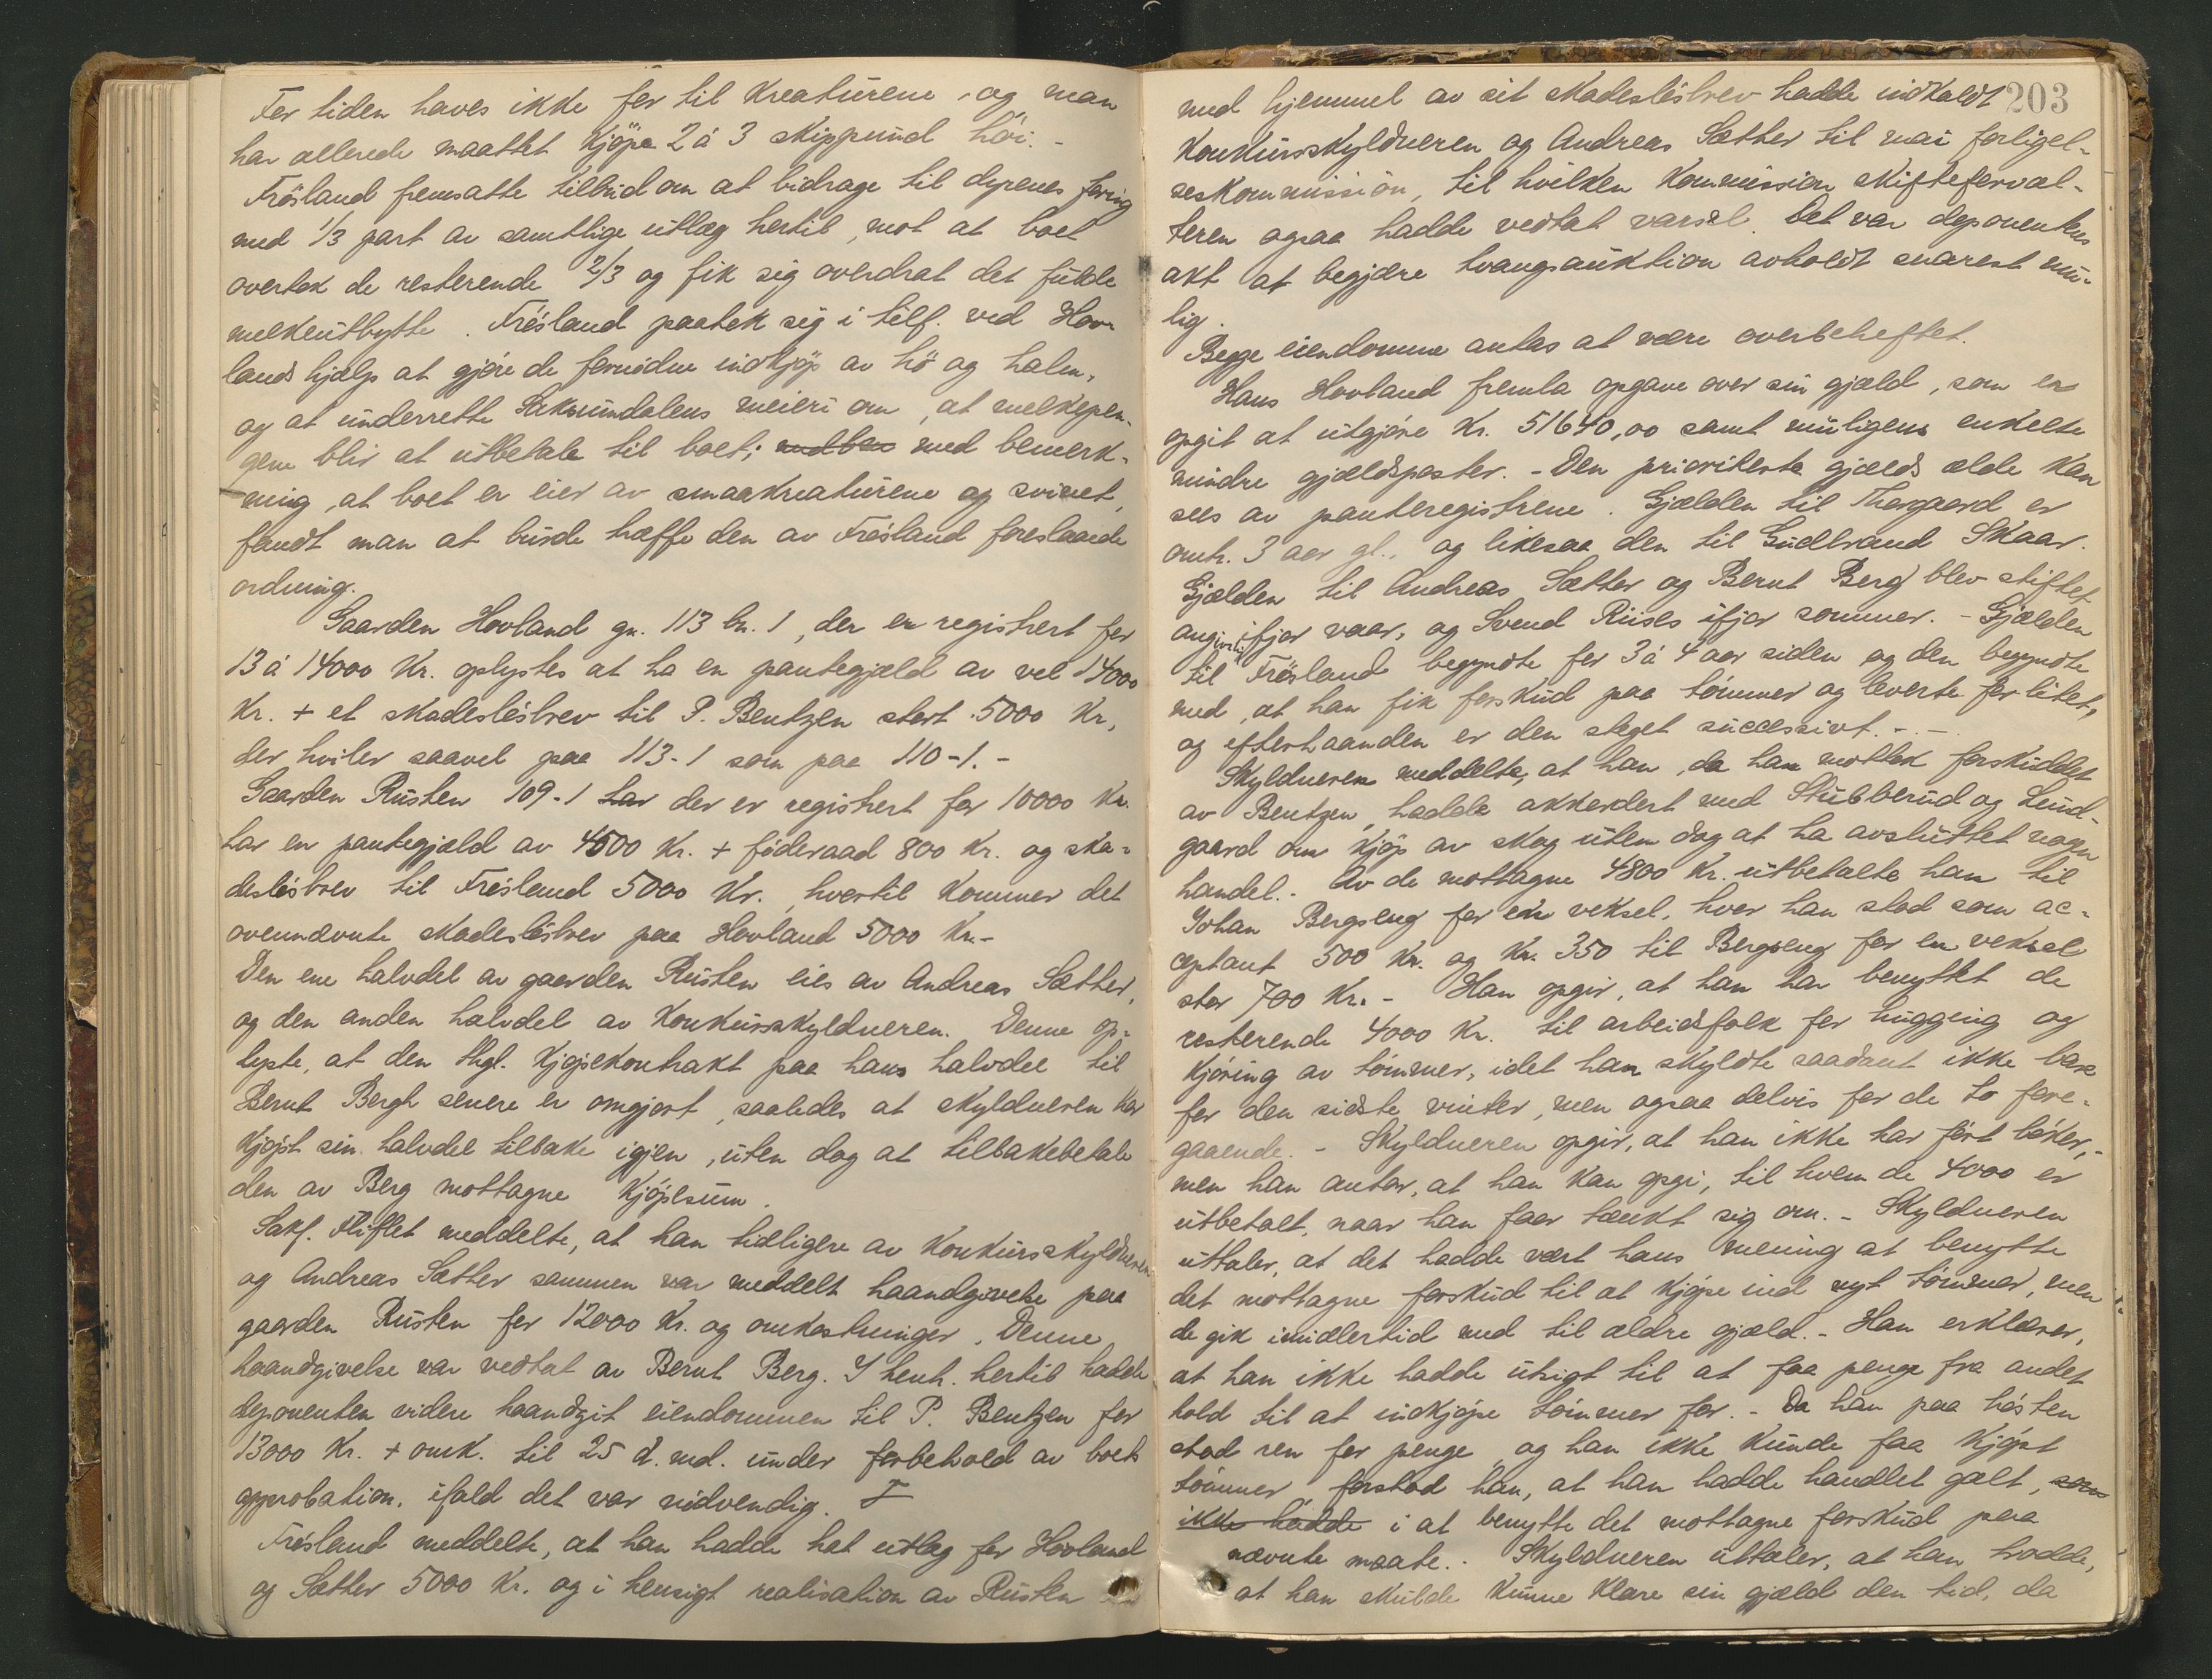 For tiden haves ikke for til Kreaturene, og man
har allerede maattet Kjöpe 2 á 3 skippund höi. -
Frösland fremsatte tilbud om at bidrage til dyrenes foring
med 1/3 part av samtlige utlæg hertil, mot at boet
overtok de resterende 2/3 og fik sig overdrat det fulde
melkeutbytte. Frösland paatok sig i tilf. ved Hov-
lands hjælp at gjöre de fornödne indkjöp av hö og halm,
og at underrette Soknundalens meieri om, at melkepen-
gene blir at utbetale til boet; med bemerk-
ning, at boet er eier av smaakreaturene og svinet,
fandt man at burde træffe den av Frösland foreslaaede
ordning.
Gaarden Hovland gn. 113 bn. 1, der er registrert for
13 á 14000 Kr. oplystes at ha en pantegjæld av vel 14000
Kr. + et skadeslösbrev til P. Bentzen stort 5000 Kr,
der hviler saavel paa 113-1 som paa 110-1. -
Gaarden Rusten 109-1 har der er registrert for 10000 Kr.
har en pantegjæld av 4500 Kr. + föderaad 800 Kr. og ska-
deslösbrev til Frösland 5000 Kr., hvortil kommer det
ovennævnte skadeslösbrev paa Hovland 5000 Kr. -
Den ene halvdel av gaarden Rusten eies av Andreas Sæther,
og den anden halvdel av Konkursskyldneren. Denne op-
lyste, at den thgl. Kjöpekontrakt paa hans halvdel til
Bernt Bergh senere er omgjort, saaledes at skyldneren har
Kjöpt sin halvdel tilbake igjen, uten dog at tilbakebetale
den av Berg mottagne Kjöpesum.
Sakf. Fliflet meddelte, at han tidligere av Konkursskyldneren
og Andreas Sæther sammen var meddelt haandgivelse paa
gaarden Rusten for 12000 Kr. og omkostninger. Denne
haandgivelse var vedtat av Bernt Berg. I henh. hertil hadde
deponenten videre haandgit eiendommen til P. Bentzen for
13000 Kr. + omk. til 25 d. md. under forbehold av boets
approbation, ifald det var nödvendig.
Frösland meddelte, at han hadde hat utlæg for Hovland
og Sæther 5000 Kr. og i hensigt realisation av Rusten
203
med hjemmel av sit skadeslösbrev hadde indkaldt
Konkursskyldneren og Andreas Sæther til mai forligel-
seskommission, til hvilken Kommission skifteforval-
teren ogsaa hadde vedtat varsel. Det var deponentens
akt at begjære tvangsauktion avholdt snarest mu-
lig.
Begge eiendomme antas at være overbeheftet.
Hans Hovland fremla opgave over sin gjæld, som er
opgit at utgjöre Kr. 51640,00 samt muligens enkelte
mindre gjældsposter. - Den prioriterte gjælds ælde kan
sees av panteregistrene. Gjælden til Thorgaard er
omtr. 3 aar gl., og likesaa den til Gudbrand Skaar.
Gjælden til Andreas Sæther og Bernt Berg blev stiftet
angivelig ifjor vaar, og Svend Riises ifjor sommer. - Gjælden
til Frösland begyndte for 3 á 4 aar siden og den begyndte
med, at han fik forskud paa tömmer og leverte for litet,
og efterhaanden er den steget successivt. -
Skyldneren meddelte, at han, da han mottok forskuddet
av Bentzen, hadde akkordert med Stubberud og Lund-
gaard om Kjöp av skog uten dog at ha avsluttet nogen
handel. - Av de mottagne 4800 Kr. utbetalte han til
Johan Bergseng for en veksel, hvor han stod som ac-
ceptant 500 Kr. og Kr. 350 til Bergseng for en veksel
stor 700 Kr. - Han opgir, at han har benyttet de
resterende 4000 Kr. til arbeidsfolk for hugging og
Kjöring av tömmer, idet han skyldte saadant ikke bare
for den sidste vinter, men ogsaa delvis for de to fore-
gaaende. - Skyldneren opgir, at han ikke har fört böker, -
men han antar, at han kan opgi, til hvem de 4000 er
utbetalt, naar han faar tænkt sig om. - Skyldneren
uttaler, at det hadde vært hans mening at benytte
det mottagne forskud til at Kjöpe ind nyt tömmer, men
de gik imidlertid med til ældre gjæld. - Han erklærer,
at han ikke hadde utsigt til at faa penge fra andet
hold til at indkjöpe tömmer for. - Da han paa hösten
stod ren for penge, og han ikke kunde faa Kjöpt
tömmer forstod han, at han hadde handlet galt, som
ikke hadde i at benytte det mottagne forskud paa
nævnte maate. - Skyldneren uttaler, at han trodde,
at han skulde kunne klare sin gjæld den tid, da